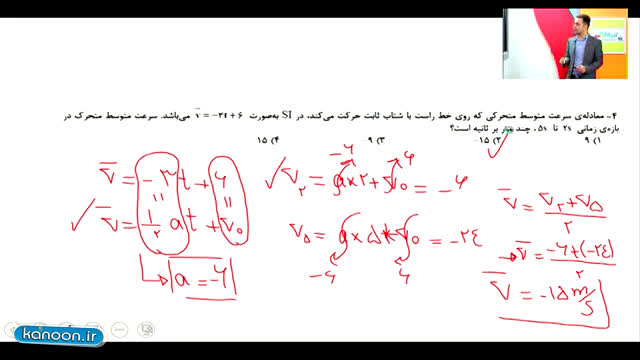 ۴- معادله‌ی سرعت متوسط متحرکی که روی خط راست با شتاب ثابت حرکت می‌کند، در SI به‌صورت v̄ = -۳t + ۶ می‌باشد. سرعت متوسط متحرک در
بازه‌ی زمانی ۲s تا ۵s، چند متر بر ثانیه است؟
۱) ۹ ۲) ۱۵- ۳) ۹- ۴) ۱۵
v̄ = -۳t + ۶
v̄ = ۱/۲ at + v۰
a = -۶
-۶ ۶
v۲ = a×۲ + v۰ = -۶
v۵ = a×۵ + v۰ = -۲۴
-۶ ۶
v̄ = v۲ + v۵ / ۲
v̄ = -۶ + (-۲۴) / ۲
v̄ = -۱۵ m/s
kanoon.ir